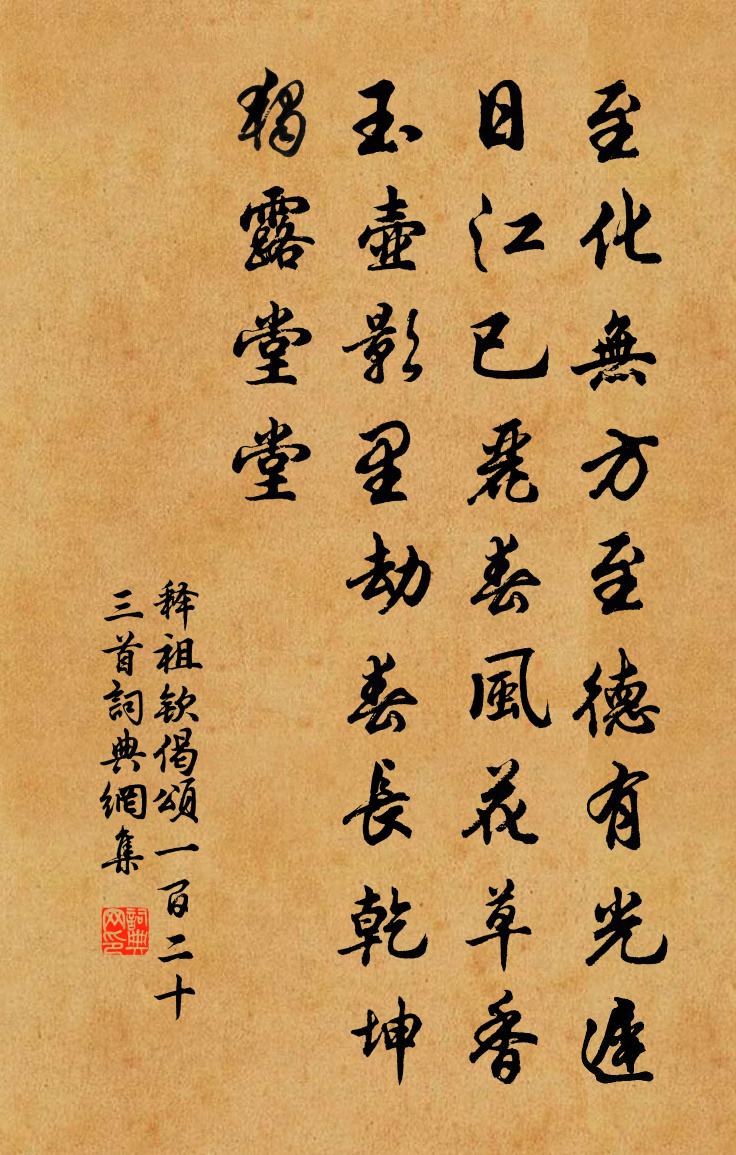 至化無方至德有光遲
日江已麗春風花草香
玉壺影里劫春長乾坤
獨露堂堂
釋祖欽偈頌一百二十
三首詞典網集
詞典网印